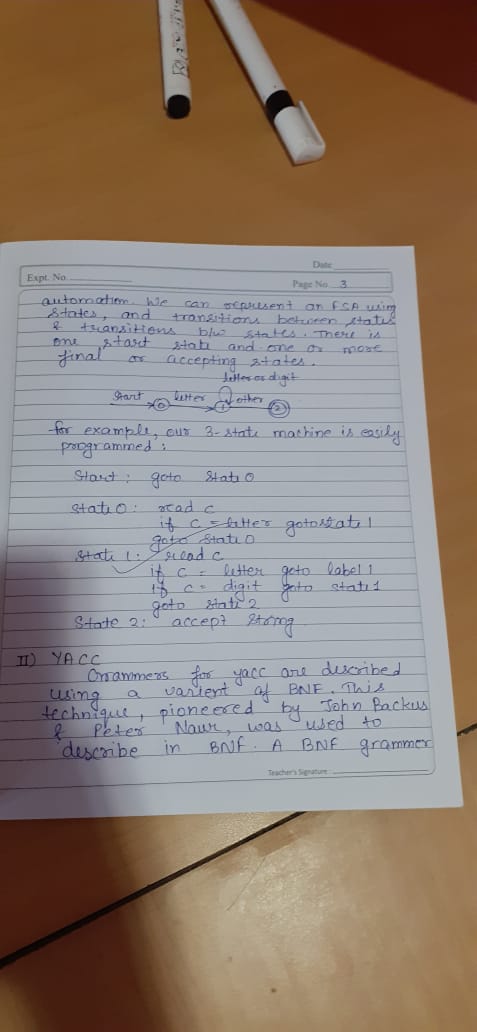 Date
Expt. No.
Page No. 3
automation. We can represent an FSA using
states, and transitions between states
& transitions b/w states. There is
one start state and one or more
final or accepting states.
letter or digit
Start letter other
0 1 2
for example, our 3-state machine is easily
programmed :
Start : goto State 0
State 0 : read c
if c = letter goto state 1
goto State 0
State 1 : read c
if c = letter goto label 1
if c = digit goto state 1
goto state 2
State 2 : accept string
II) YACC
Grammers for yacc are described
using a varient of BNF. This
technique, pioneered by John Backus
& Peter Naur, was used to
describe in BNF. A BNF grammer
Teacher's Signature :